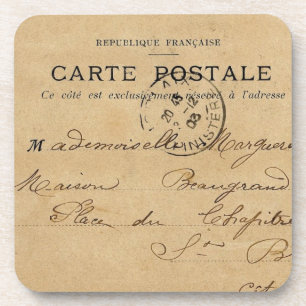 REPUBLIQUE FRANÇAISE
CARTE POSTALE
Ce côté est exclusivement réservé à l'adresse
20 45
12
03
FINISTÈRE
Mademoiselle Marguer
Maison Beaugrand
Place du Chapitre
St B